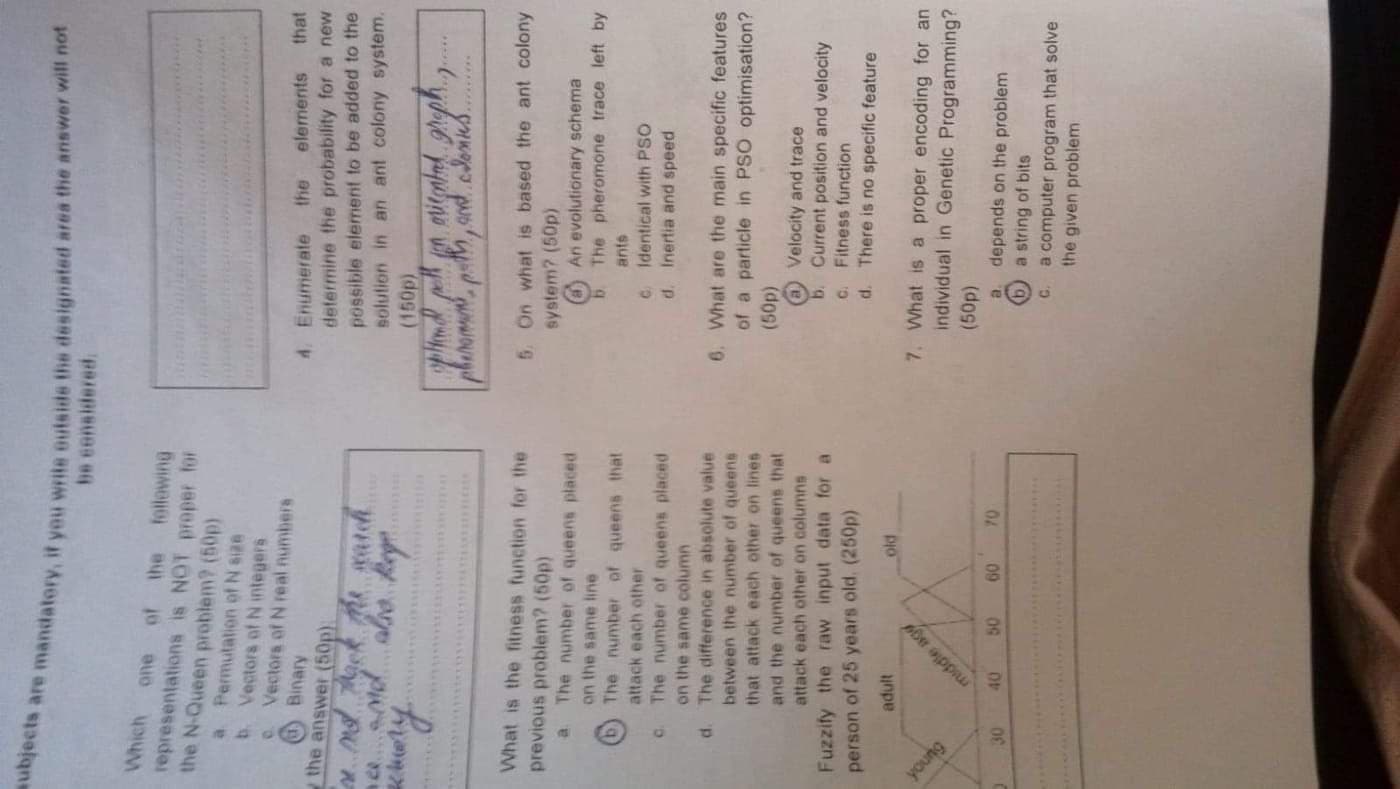 subjects are mandatory, if you write outside the designated area the answer will not
be considered.
Which one of the following
representations is NOT proper for
the N-Queen problem? (50p)
a. Permutation of N size
b. Vectors of N integers
c. Vectors of N real numbers
d. Binary
the answer (50p):
not the search
and also
What is the fitness function for the
previous problem? (50p)
a. The number of queens placed
on the same line
b. The number of queens that
attack each other
c. The number of queens placed
on the same column
d. The difference in absolute value
between the number of queens
that attack each other on lines
and the number of queens that
attack each other on columns
Fuzzify the raw input data for a
person of 25 years old. (250p)
young
adult
middle age
old
30 40 50 60 70
4. Enumerate the elements that
determine the probability for a new
possible element to be added to the
solution in an ant colony system.
(150p)
optimal path oriented graph,
paths, and colonies
5. On what is based the ant colony
system? (50p)
a. An evolutionary schema
b. The pheromone trace left by
ants
c. Identical with PSO
d. Inertia and speed
6. What are the main specific features
of a particle in PSO optimisation?
(50p)
a. Velocity and trace
b. Current position and velocity
c. Fitness function
d. There is no specific feature
7. What is a proper encoding for an
individual in Genetic Programming?
(50p)
a. depends on the problem
b. a string of bits
c. a computer program that solve
the given problem